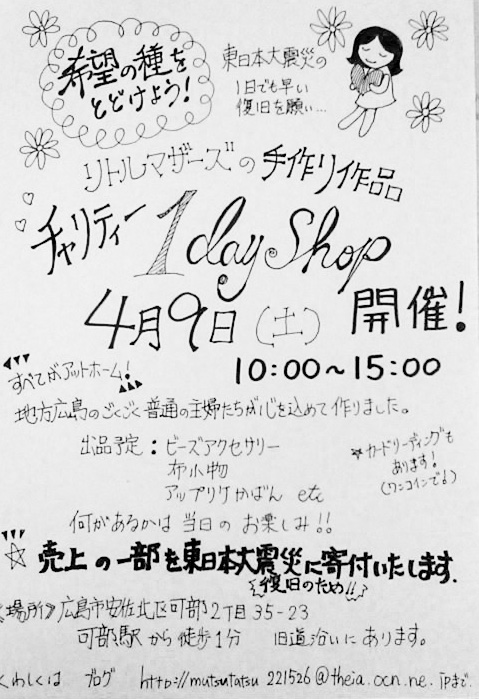 希望の種を
とどけよう!
東日本大震災の
1日でも早い
復旧を願い…
リトルマザーズの手作り作品
チャリティー 1day Shop
4月9日(土) 開催!
すべてがアットホーム!
10:00～15:00
地方広島のごくごく普通の主婦たちが心を込めて作りました。
出品予定:ビーズアクセサリー
布小物
アップリケかばん etc
☆カードリーディングも
あります!
(ワンコインでも)
何があるかは当日のお楽しみ!!
☆売上の一部を東日本大震災に寄付いたします.
復旧のため!!
《場所》広島市安佐北区可部2丁目35-23
可部駅から徒歩1分 旧道沿いにあります。
くわしくは ブログ http://mutsutatsu221526@theia.ocn.ne.jpまで.